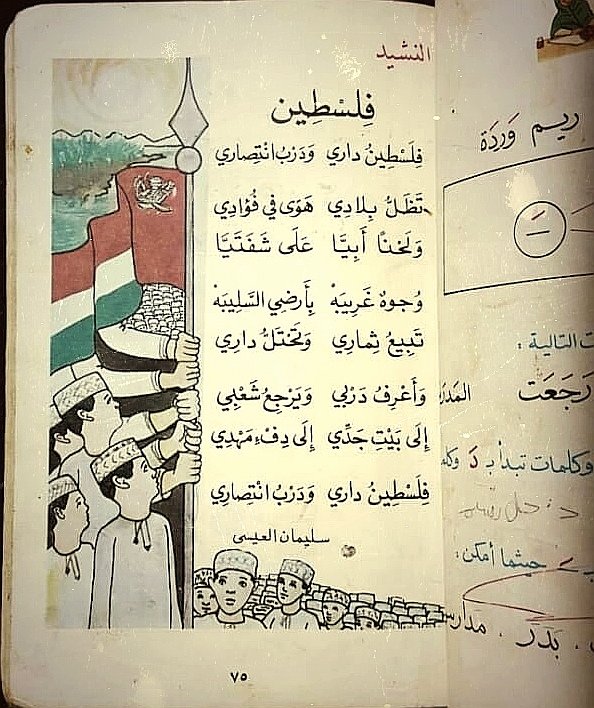 النشيد
فِلِسْطِين
فِلَسْطِينُ دارِي وَدَرْبُ انْتِصارِي
تَظَلُّ بِلادِي هَوًى في فُؤادِي
وَلَحْنًا أَبِيَّا عَلَى شَفَتَيَّا
وُجوهٌ غَرِيبَهْ بِأَرضِي السَّلِيبَهْ
تَبِيعُ ثِمارِي وَتَحْتَلُّ دارِي
وَأَعْرِفُ دَرْبِي وَيَرْجِعُ شَعْبِي
إِلَى بَيْتِ جَدِّي إِلَى دِفْءِ مَهْدِي
فِلَسْطِينُ دارِي وَدَرْبُ انْتِصارِي
سليمان العيسى
٧٥
ريم وَرْدَة
ت التالية :
رَجَعَت المدر
وكلمات تبدأ بـ دَ وكل
حيثما أمكن :
بَدْر . مدارس